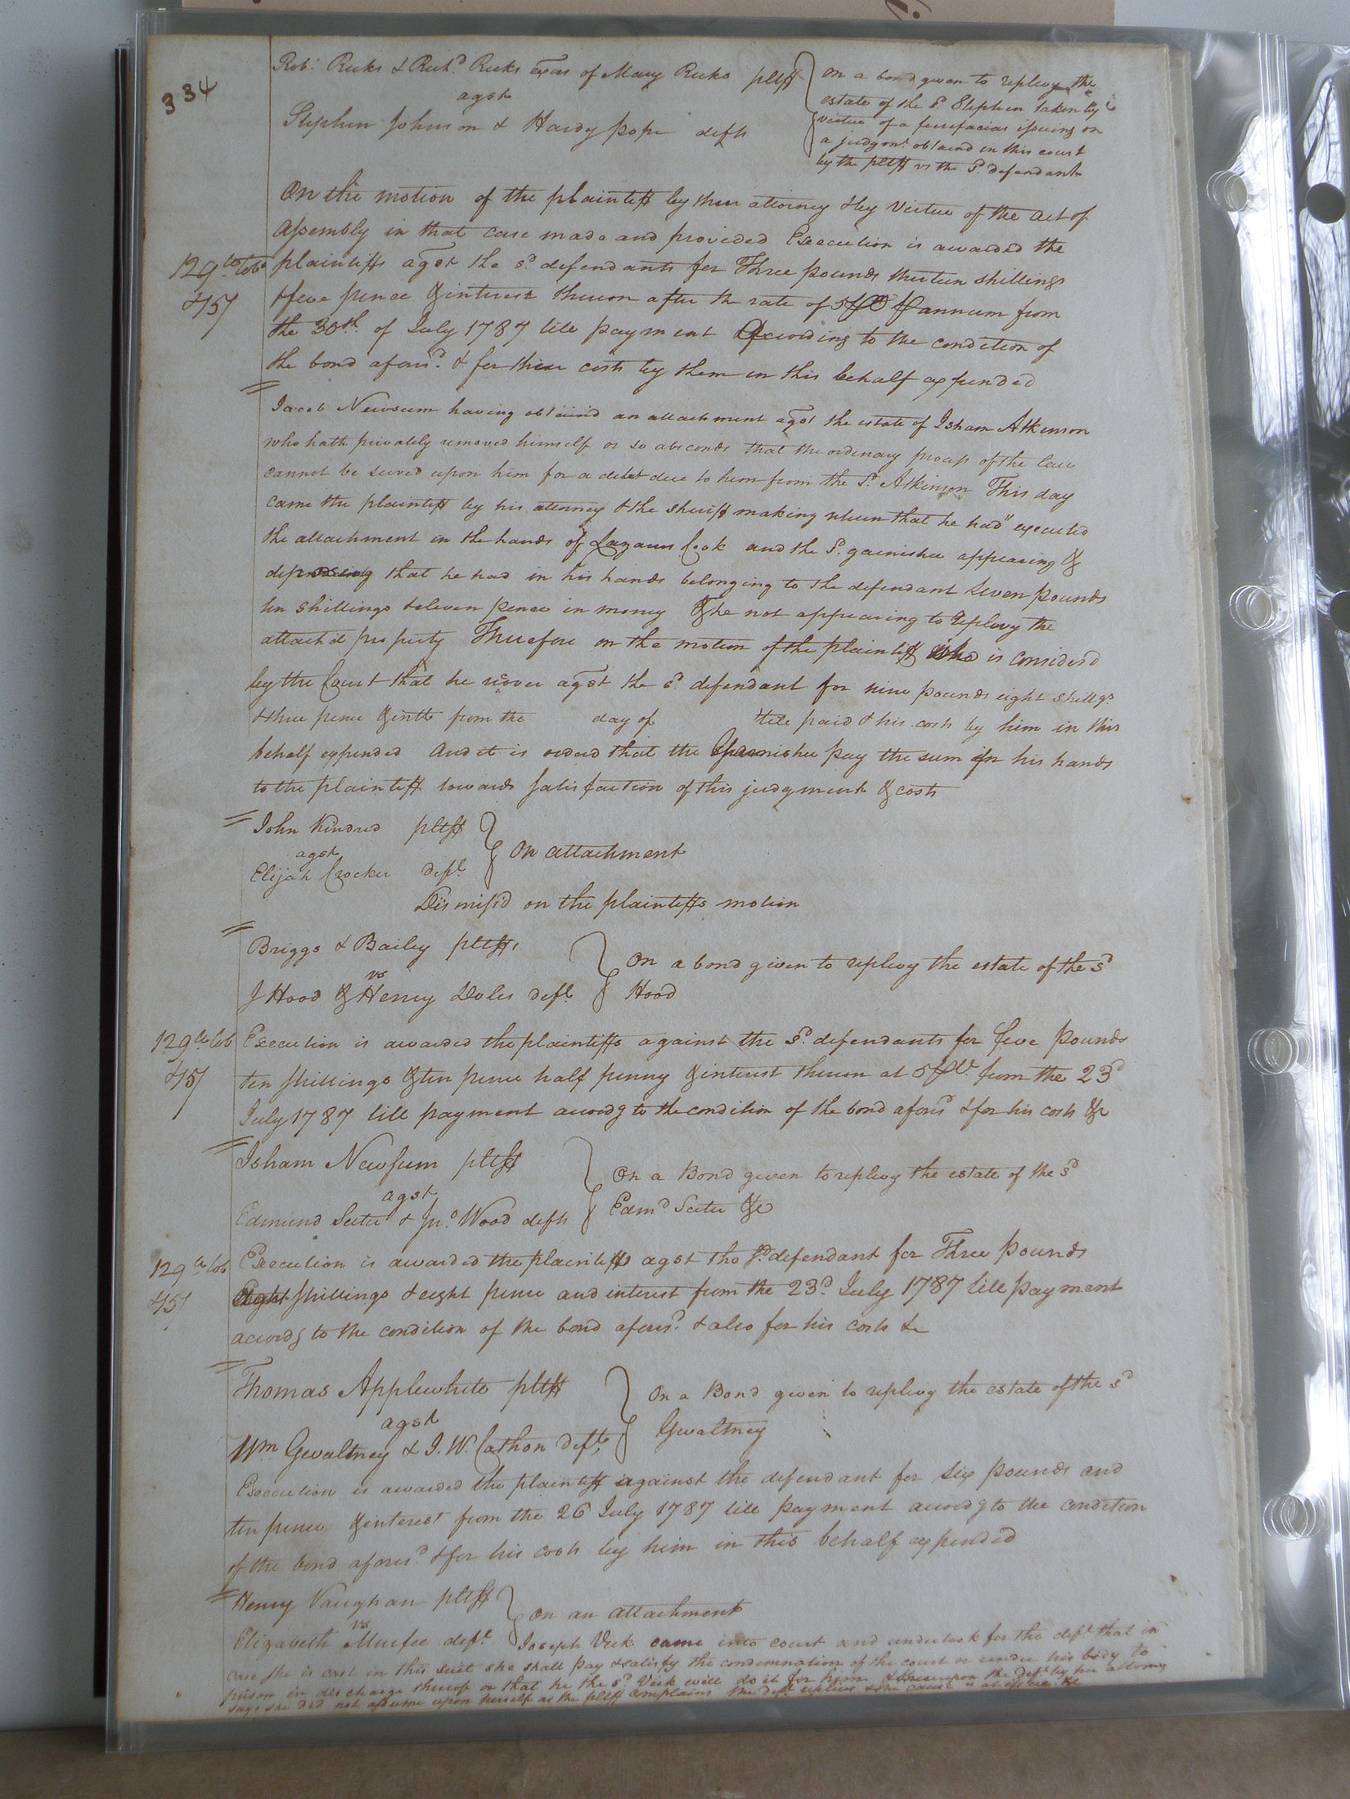 334
Robt Ricks & Richd Ricks exors of Mary Ricks pltffs
agst
Stephen Johnson & Hardy pope defts
on a bond given to replevy the
estate of the sd Stephen taken by
virtue of a fierefacias issuing on
a judgmt obtaind in this court
by the pltff vs the sd defendant
On the motion of the plaintiff by their attorney & by Virtue of the act of
Assembly in that case made and provided Execution is awarded the
plaintiffs agst the sd defendants for Three pounds thirteen shillings
& five pence & interest thereon after the rate of 5 annum from
the 30th of July 1787 till payment According to the condition of
the bond aforesd & for their costs by them in this behalf expended
129 lb tob
& 15/
Jacob Newsum having obtained an attachment agst the estate of Isham Atkinson
who hath privately removed himself or so absconds that the ordinary process of the law
cannot be served upon him for a debt due to him from the sd Atkinson This day
came the plaintiff by his attorney & the sheriff making return that he had executed
the attachment in the hands of Lazarus Cook and the sd garnishee appearing &
deposeing that he had in his hands belonging to the defendant seven pounds
ten shillings & eleven pence in money & he not appearing to Replevy the
attachd property Therefore on the motion of the plaintiff is considerd
by the Court that he recover agst the sd defendant for nine pounds eight shillgs
& three pence & intt from the day of till paid & his costs by him in this
behalf expended And it is orderd that the Garnishee pay the sum in his hands
to the plaintiff towards satisfaction of this judgment & costs
John Kindred pltff
agst
Elijah Crocker deft
On attachment
Dismissd on the plaintiffs motion
Briggs & Bailey pltffs
vs
J Hood & Henry Doles defts
On a bond given to replevy the estate of the sd
Hood
129 lb tob
& 15/
Execution is awarded the plaintiffs against the sd defendants for five pounds
ten shillings & ten pence half penny & interest thereon at 5 from the 23d
July 1787 till payment accordg to the condition of the bond aforesd & for his costs &c
Isham Newsum pltff
agst
Edmund Seeter & Jno Wood defts
On a Bond given to replevy the estate of the sd
Edmd Seeter &c
129 lb tob
& 15/
Execution is awarded the plaintiff agst the sd defendant for Three pounds
Eight shillings & eight pence and interest from the 23d July 1787 till payment
accordg to the condition of the bond aforesd & also for his costs &c
Thomas Applewhite pltff
agst
Wm Gwaltney & J. W. Cathon defts
On a Bond given to replevy the estate of the sd
Gwaltney
Execution is awarded the plaintiff against the defendant for six pounds and
ten pence & interest from the 26 July 1787 till payment accordg to the condition
of the bond aforesd & for his costs by him in this behalf expended
Henry Vaughan pltff
vs
Elizabeth Murfee deft
On an attachment
Joseph Vick came into court and undertook for the deft that in
case she is cast in this suit she shall pay & satisfy the condemnation of the court or render his body to
prison in discharge thereof or that he the sd Vick will do it for him & thereupon the deft by her attorney
says she did not assume upon herself as the pltff complains the deft replies & the cause is